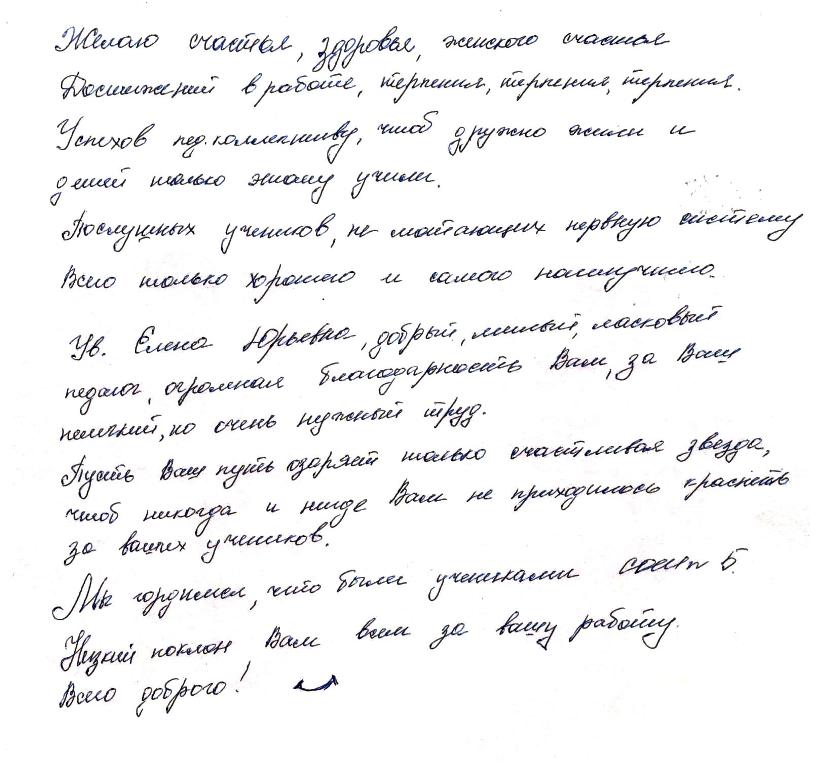 Желаю счастья, здоровья, женского счастья
Достижений в работе, терпения, терпения, терпения.
Успехов пед. коллективу, чтоб дружно жили и
детей только этому учили.
Послушных учеников, не мотающих нервную систему
Всего только хорошего и самого наилучшего.
Ув. Елена Юрьевна, добрый, милый, ласковый
педагог, огромная благодарность Вам, за Ваш
нелегкий, но очень нужный труд.
Пусть Ваш путь озаряет только счастливая звезда,
чтоб никогда и нигде Вам не приходилось краснеть
за ваших учеников.
Мы гордимся, что были учениками СОШ № 5.
Низкий поклон Вам всем за вашу работу.
Всего доброго!